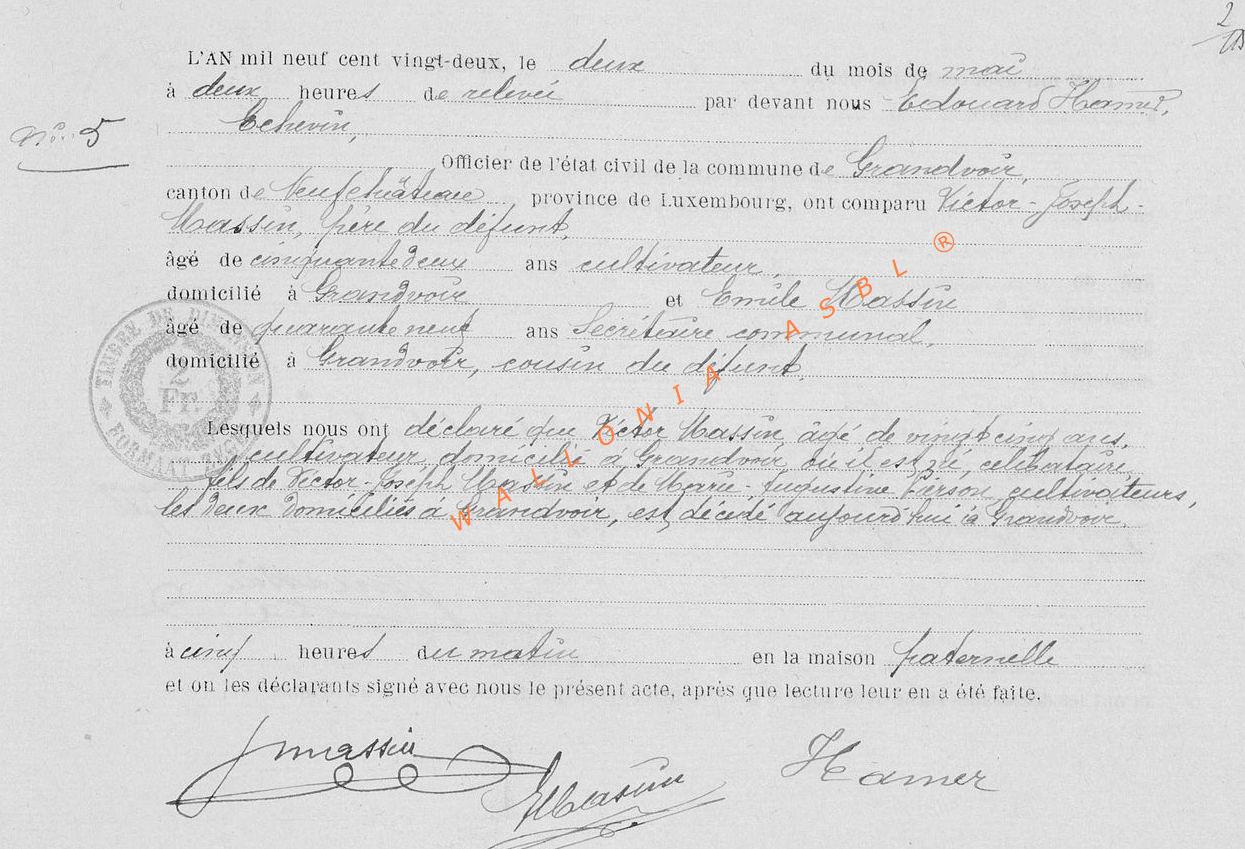 2
L'AN mil neuf cent vingt-deux, le deux du mois de mai
à deux heures de relevée par devant nous Edouard Hamer,
N° 5
Echevin,
Officier de l'état civil de la commune de Grandvoir,
canton de Neufchâteau, province de Luxembourg, ont comparu Victor-Joseph-
Massin, père du défunt,
âgé de cinquante deux ans cultivateur,
domicilié à Grandvoir et Emile Massin
âgé de quarante neuf ans Secrétaire communal,
domicilié à Grandvoir, cousin du défunt,
TIMBRE DE DIMENSION
2
Fr.
Lesquels nous ont déclaré que Victor Massin, âgé de vingt cinq ans,
cultivateur domicilié à Grandvoir, où il est né, célibataire
fils de Victor-Joseph Massin et de Marie-Augustine Pierson, cultivateurs,
les deux domiciliés à Grandvoir, est décédé aujourd'hui à Grandvoir,
à cinq heures du matin en la maison paternelle
et on les déclarants signé avec nous le présent acte, après que lecture leur en a été faite.
Jmassin
EMassin
Hamer
WALLONIA ASBL ®